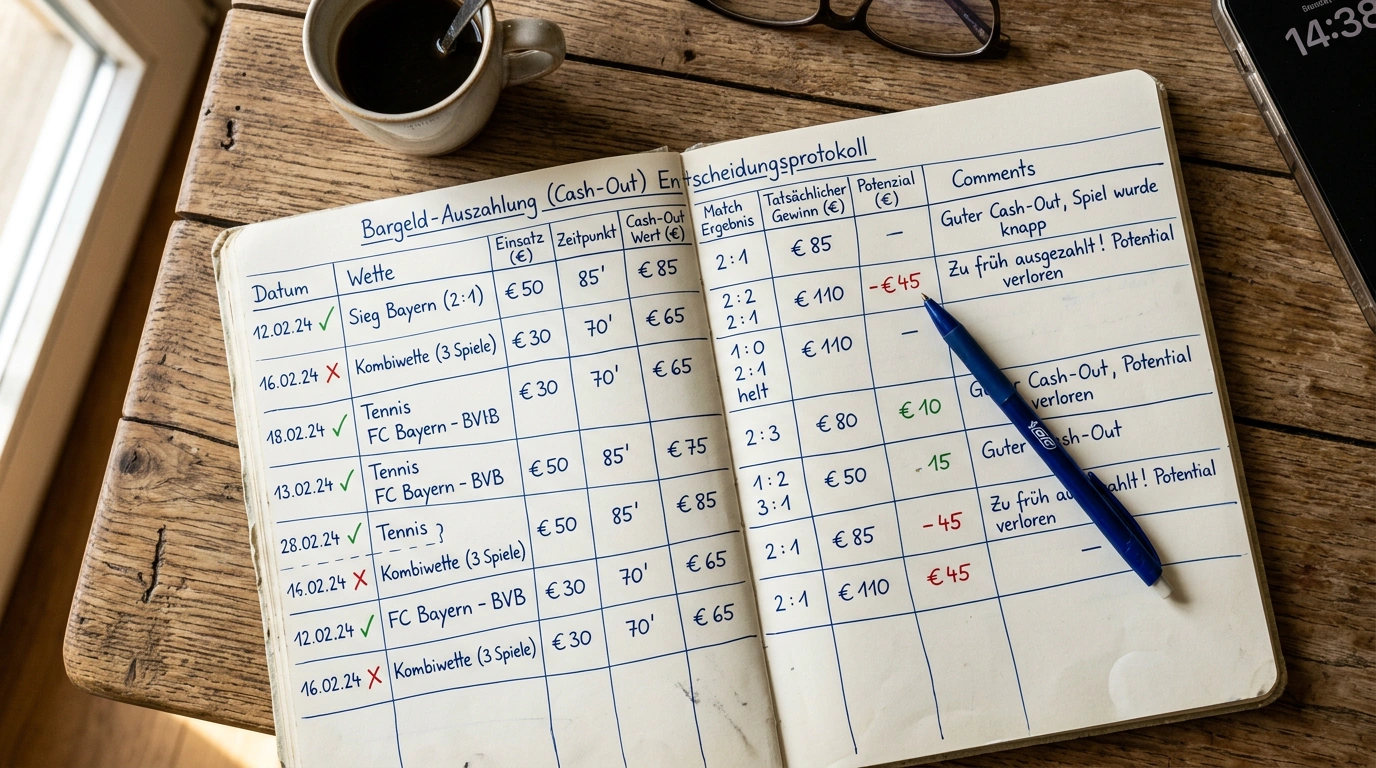 14:38
Bargeld-Auszahlung (Cash-Out) Entscheidungsprotokoll
Datum Wette Einsatz (€) Zeitpunkt Cash-Out Wert (€)
12.02.24 ✓ Sieg Bayern (2:1) €50 85' €85
16.02.24 X Kombiwette (3 Spiele) €30 70' €65
18.02.24 ✓ Tennis €30 70' €65
FC Bayern - BVIB
13.02.24 ✓ Tennis €50 85' €75
FC Bayern - BVB
28.02.24 ✓ Tennis ? €50 85' €85
16.02.24 X Kombiwette (3 Spiele)
12.02.24 ✓ FC Bayern - BVB €30 70' €65
16.02.24 X Kombiwette (3 Spiele) €30 70' €65
Match Ergebnis Tatsächlicher Gewinn (€) Potenzial (€) Comments
2:1 €85 — Guter Cash-Out, Spiel wurde
knapp
2:2 €110 -€45 Zu früh ausgezahlt! Potential
2:1 verloren
1:0 €110 —
2:1
helt
2:3 €80 €10 Cash-Out, Potential
verloren
1:2 €50 -15 Guter
3:1
2:1 €85 -45 Zu früh Potential
verloren
2:1 €110 €45 —
BIC